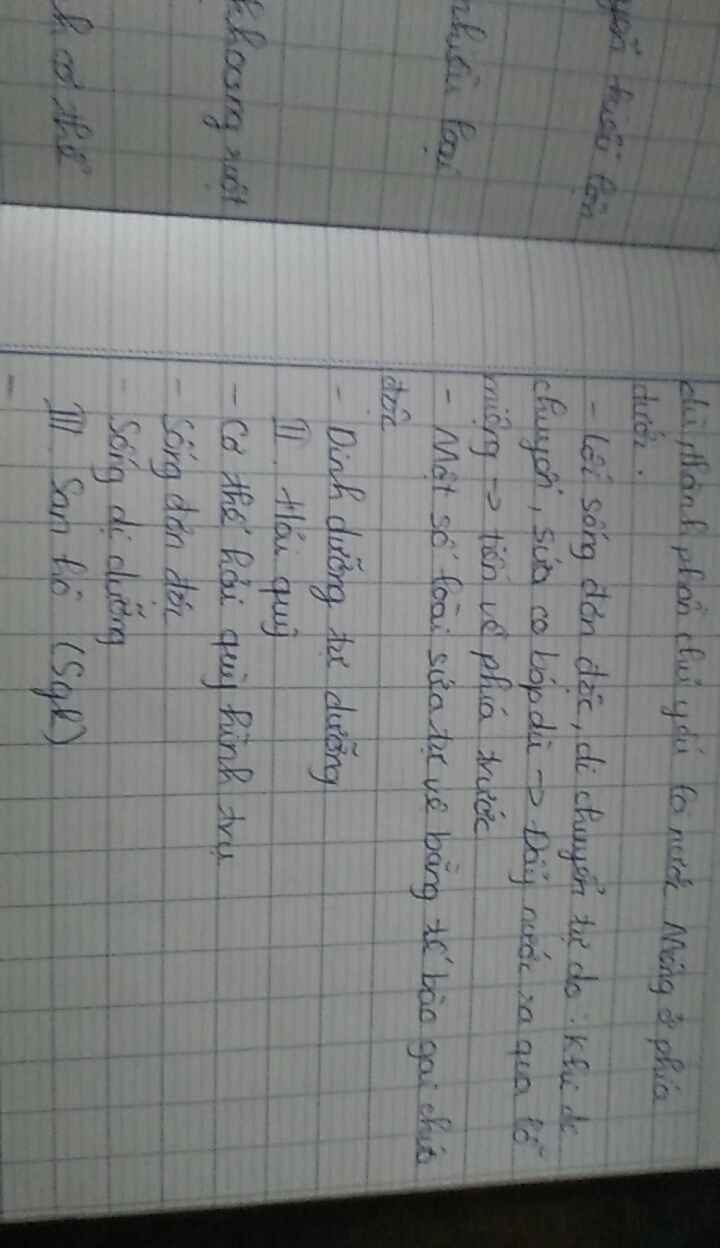 yển kiểu lộn
nhiều loại
khoang ruột
h cơ thể
dù, thành phần chủ yếu là nước. Miệng ở phía
dưới.
- Lối sống đơn độc, di chuyển tự do. Khi di
chuyển, sứa co bóp dù -> Đẩy nước ra qua lỗ
miệng -> tiến về phía trước
- Một số loài sứa tự vệ bằng tế bào gai chứa
độc
- Dinh dưỡng dị dưỡng
II. Hải quỳ
- Cơ thể hải quỳ hình trụ
- Sống đơn độc
- Sống dị dưỡng
III. San hô (Sgk)
-